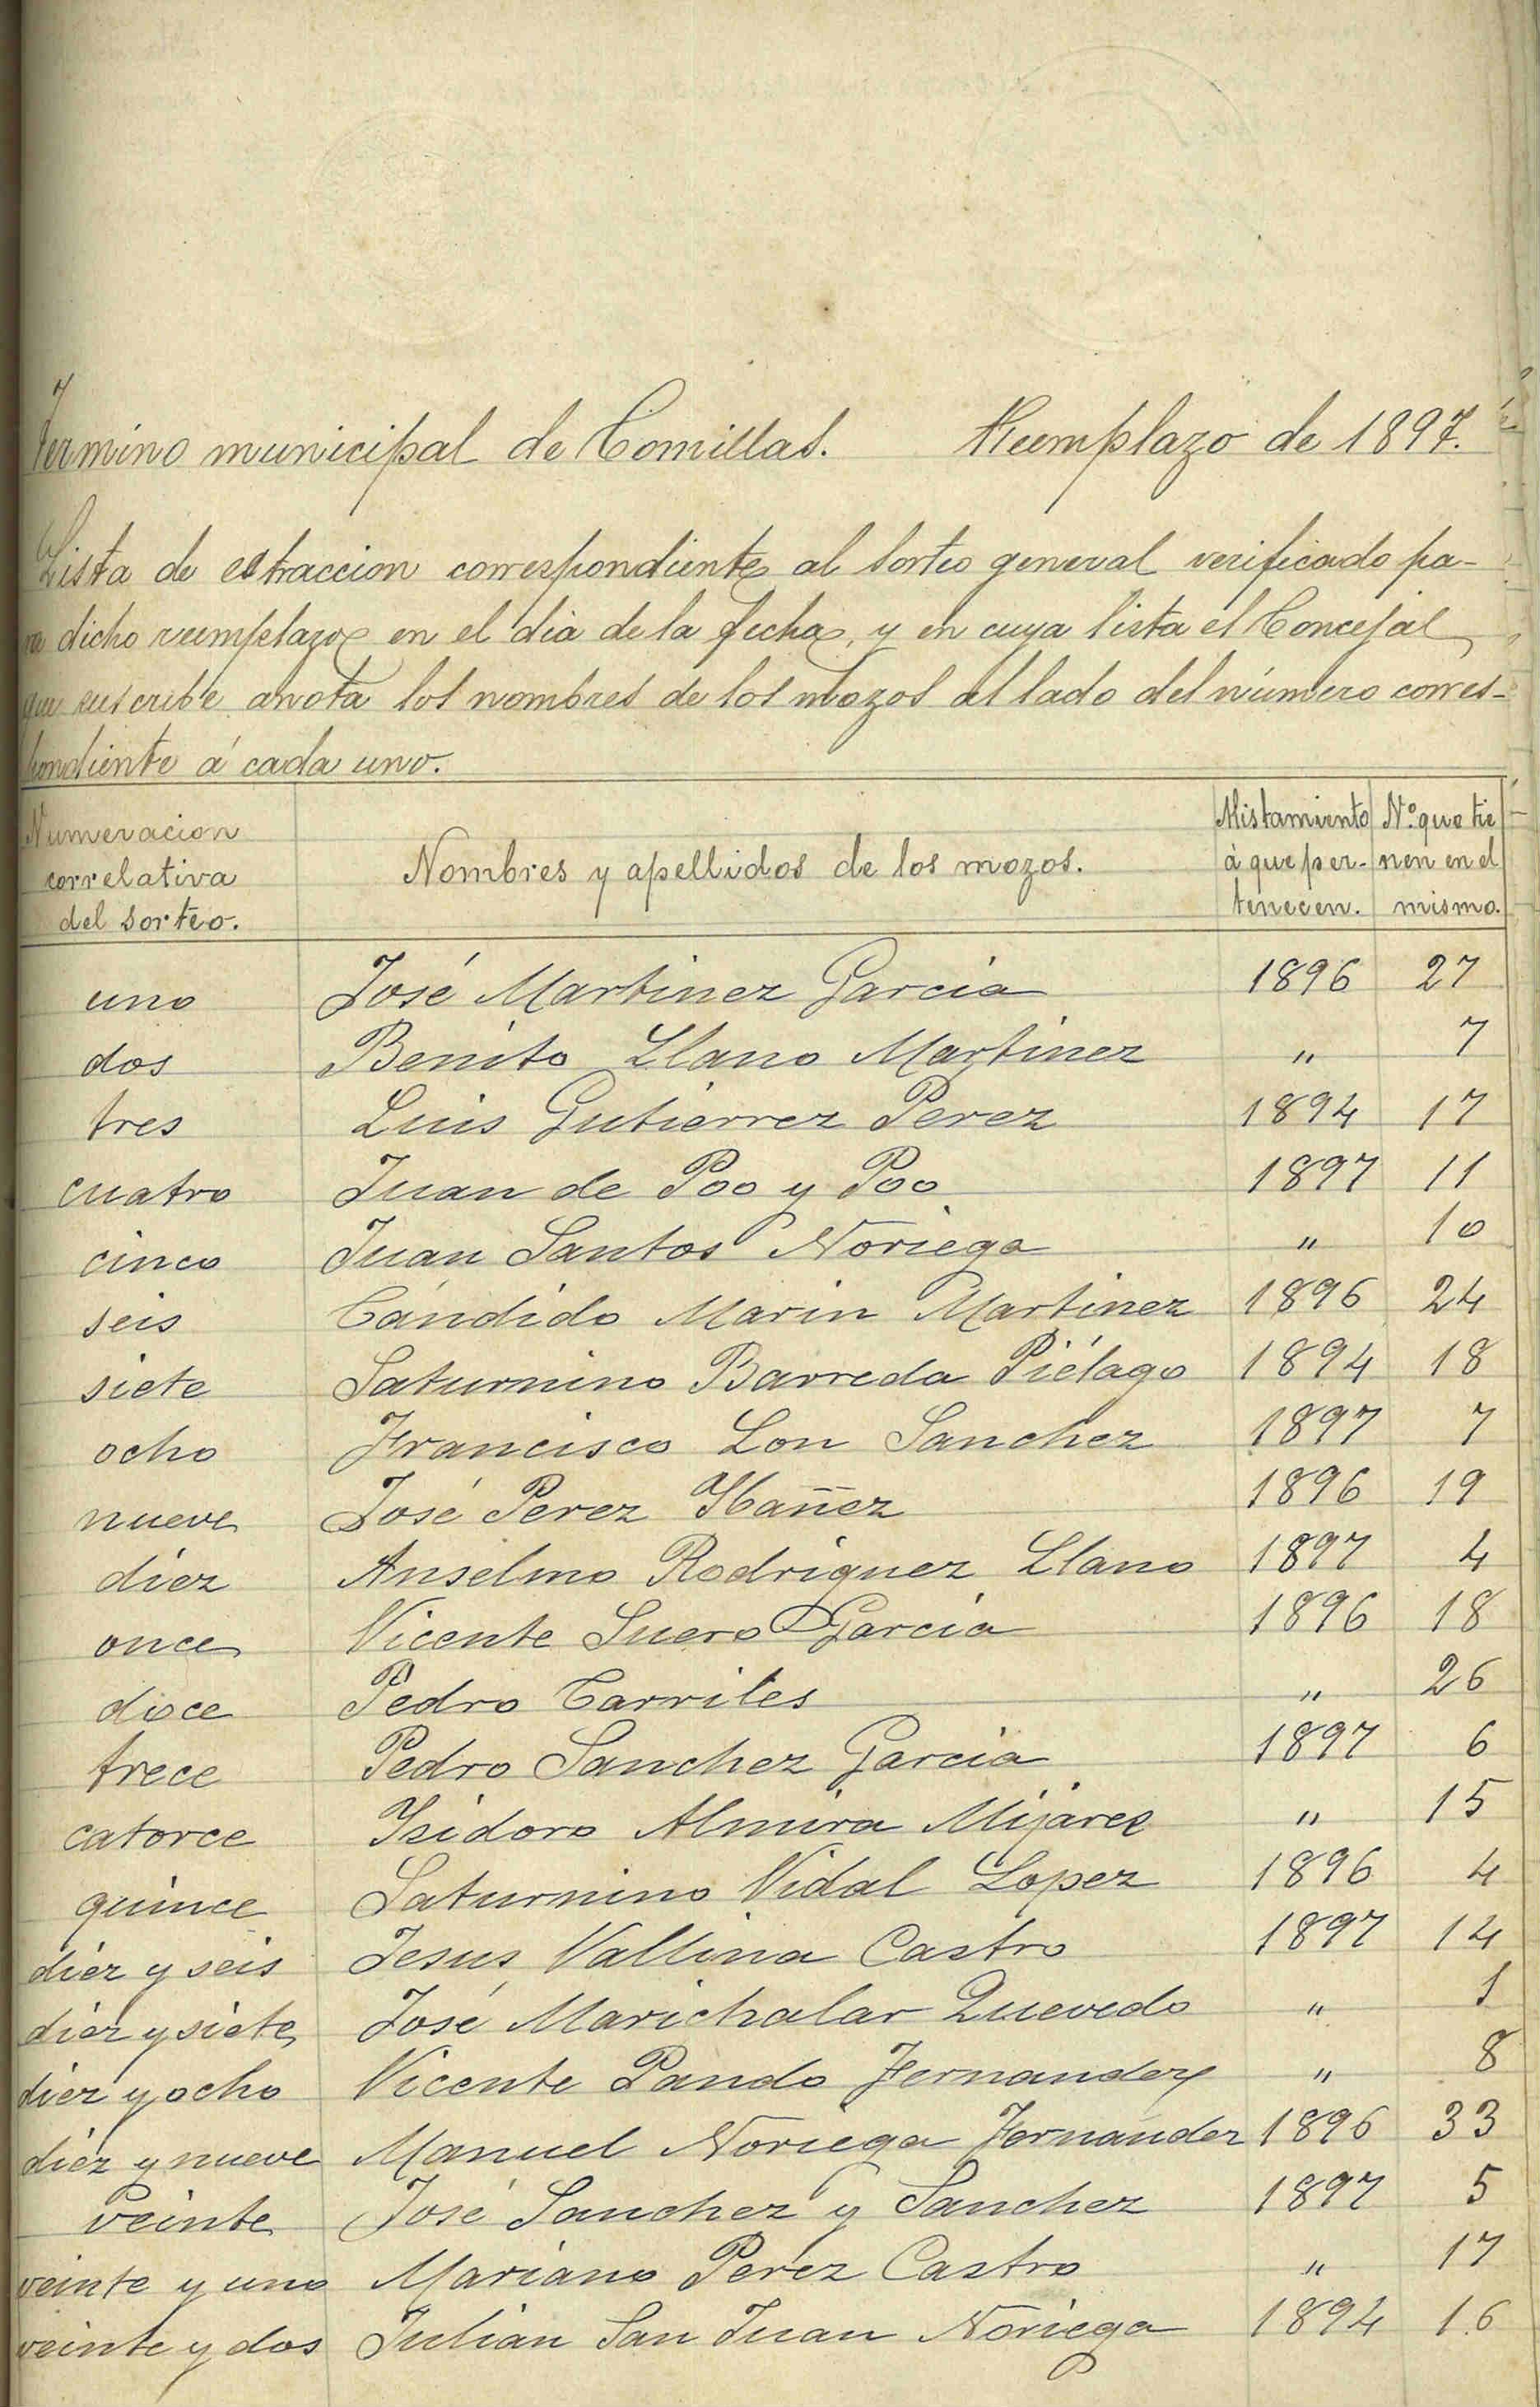 Termino municipal de Comillas. Reemplazo de 1897.
Lista de estraccion correspondiente al sorteo general verificado pa-
ra dicho reemplazo en el dia de la fecha, y en cuya lista el Concejal
que suscribe anota los nombres de los mozos al lado del número corres-
pondiente á cada uno.
Numeracion correlativa del sorteo. Nombres y apellidos de los mozos. Alistamiento á que per-tenecen. N.º que tie nen en el mismo.
uno José Martinez Garcia 1896 27
dos Benito Llano Martinez " 7
tres Luis Gutierrez Perez 1894 17
cuatro Juan de Poo y Poo 1897 11
cinco Juan Santos Noriega " 10
seis Cándido Marin Martinez 1896 24
siete Saturnino Barreda Piélago 1894 18
ocho Francisco Lon Sanchez 1897 7
nueve José Perez Ybañez 1896 19
diez Anselmo Rodriguez Llano 1897 4
once Vicente Suero Garcia 1896 18
doce Pedro Carriles " 26
trece Pedro Sanchez Garcia 1897 6
catorce Isidoro Almira Mijares " 15
quince Saturnino Vidal Lopez 1896 4
diez y seis Jesus Vallina Castro 1897 14
diez y siete José Marichalar Quevedo " 1
diez y ocho Vicente Pando Fernandez " 8
diez y nueve Manuel Noriega Fernandez 1896 33
veinte José Sanchez y Sanchez 1897 5
veinte y uno Mariano Perez Castro " 17
veinte y dos Julian San Juan Noriega 1894 16